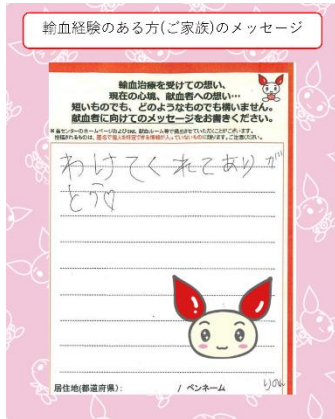 輸血経験のある方(ご家族)のメッセージ
輸血治療を受けての想い、
現在の心境、献血者への想い…
短いものでも、どのようなものでも構いません。
献血者に向けてのメッセージをお書きください。
わけてくれてありが
とう♡
居住地(都道府県):　/ ペンネーム